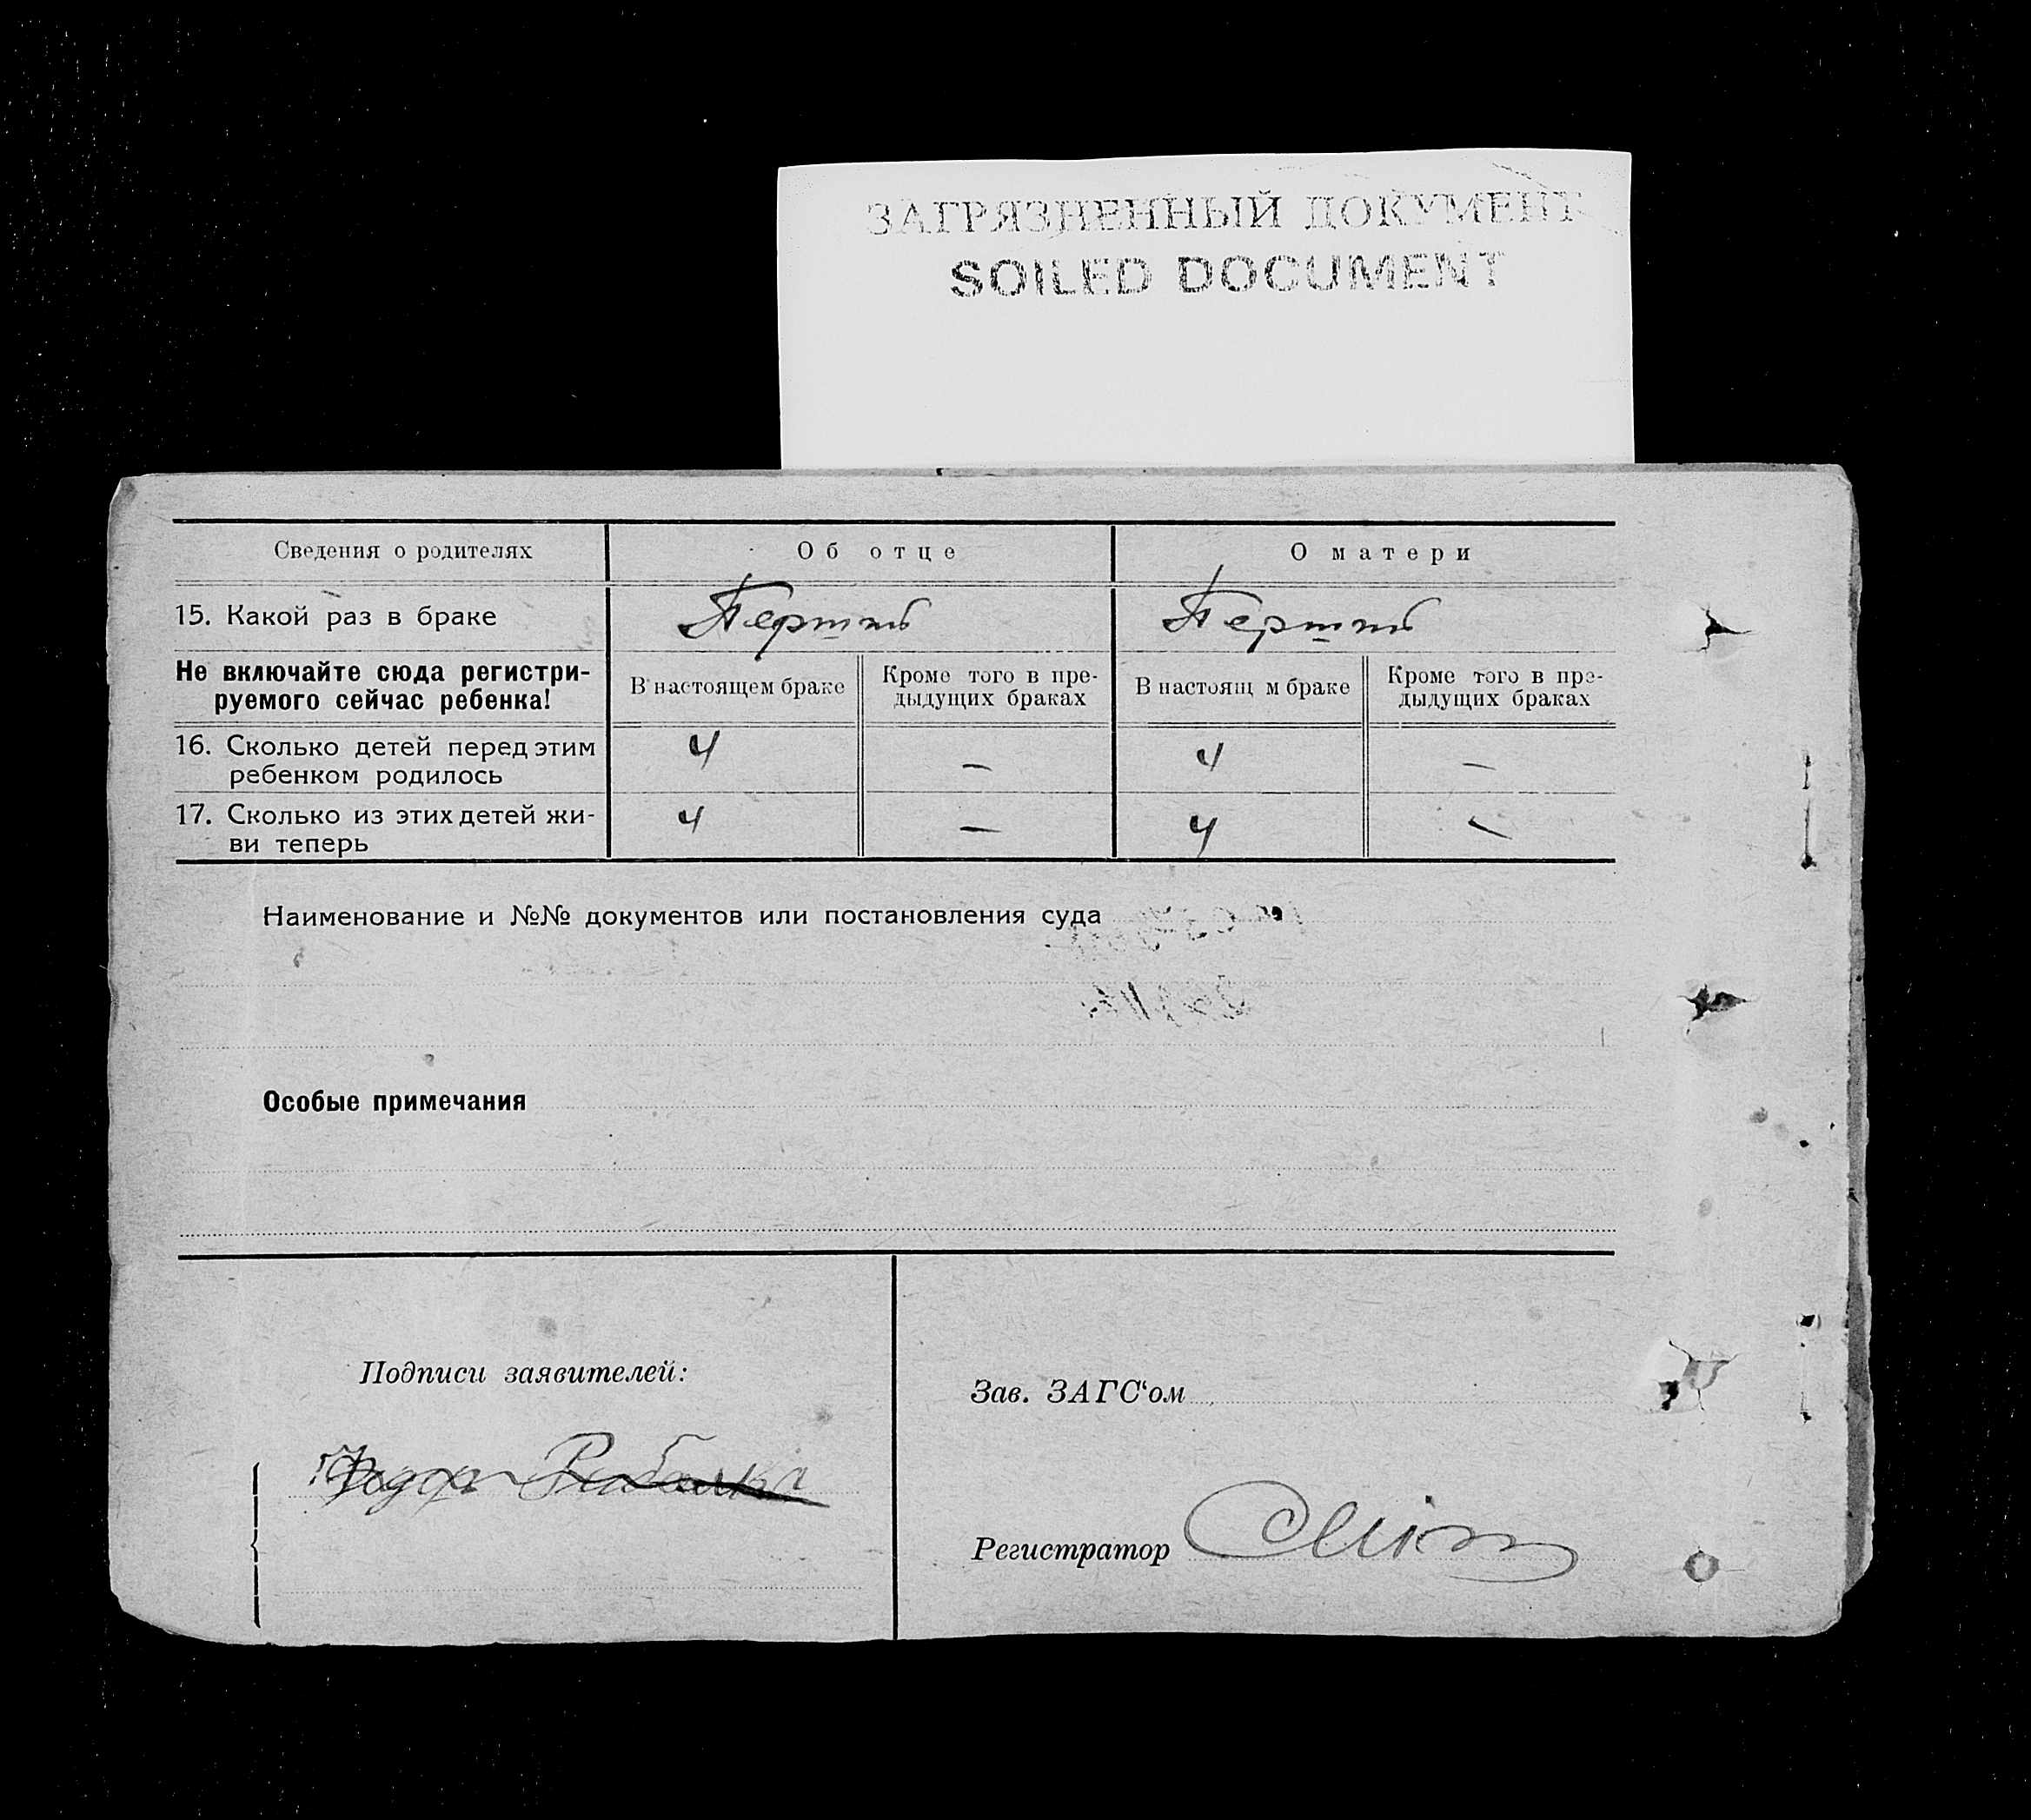 ЗАГРЯЗНЕННЫЙ ДОКУМЕНТ
SOILED DOCUMENT
Сведения о родителях Об отце О матери
15. Какой раз в браке Перший Перший
Не включайте сюда регистри-
руемого сейчас ребенка!
В настоящем браке Кроме того в пре-
дыдущих браках
В настоящ м браке Кроме того в пре-
дыдущих браках
16. Сколько детей перед этим
ребенком родилось
4 — 4 —
17. Сколько из этих детей жи-
ви теперь
4 — 4 —
Наименование и №№ документов или постановления суда
Особые примечания
Подписи заявителей:
Зав. ЗАГС‘ом
Регистратор